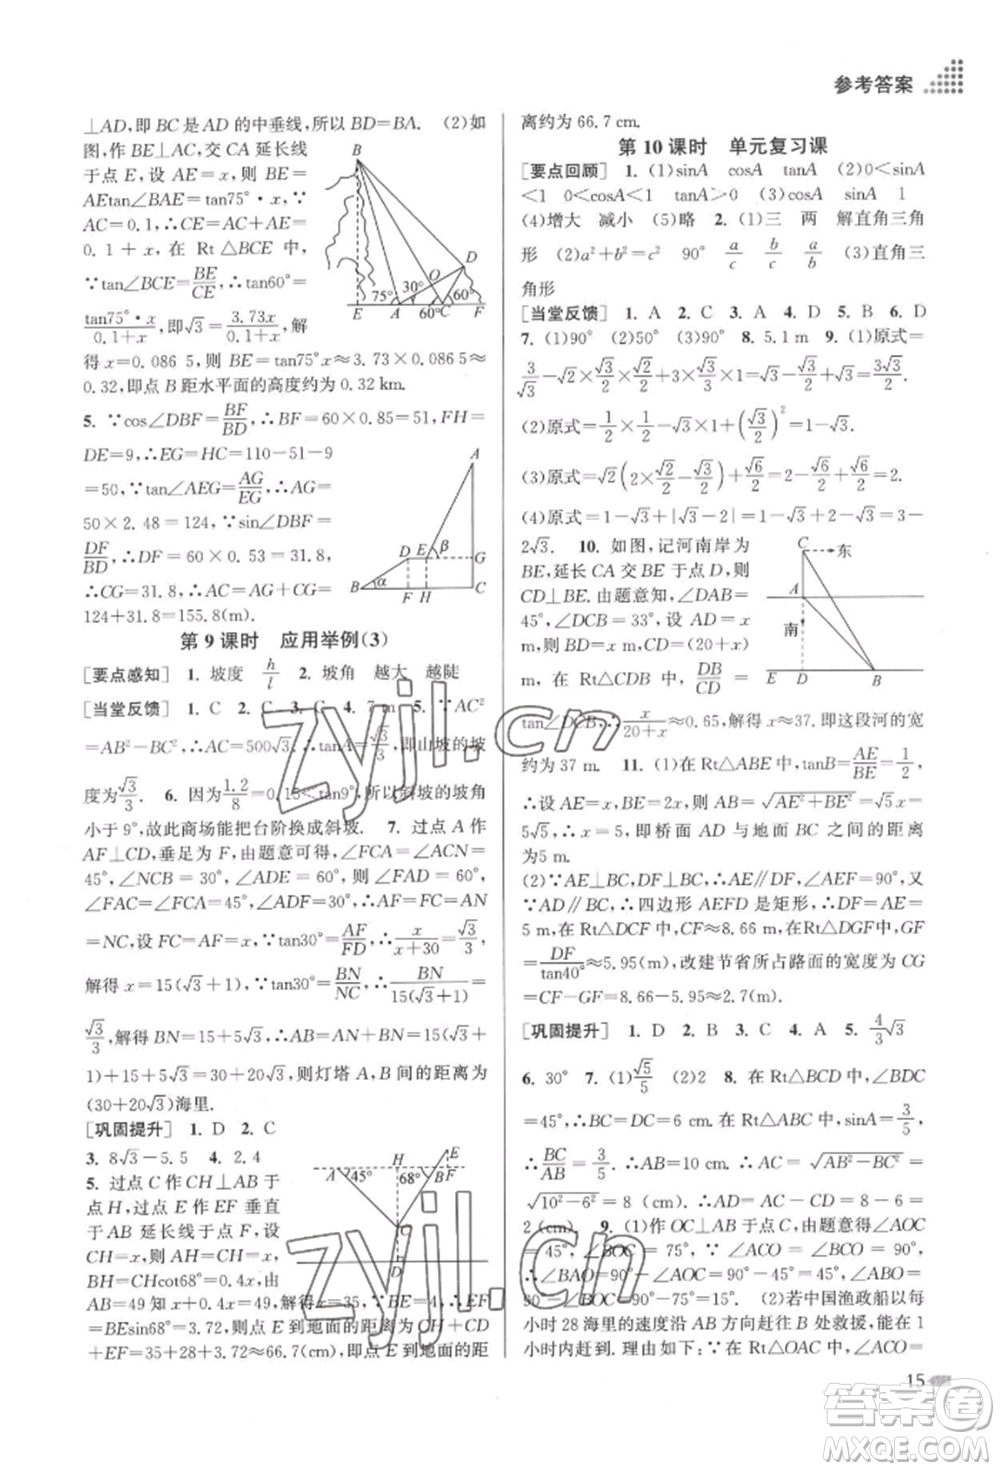 参考答案
⊥AD,即 BC 是 AD 的中垂线,所以 BD=BA. (2)如
图,作 BE⊥AC,交 CA 延长线
于点 E,设 AE=x,则 BE=
AEtan∠BAE=tan75°·x,∵
AC=0.1,∴CE=AC+AE=
0.1+x,在 Rt△BCE 中,
∵tan∠BCE=BE/CE,∴tan60°=
(tan75°·x)/(0.1+x),即√3=3.73x/(0.1+x),解
得 x≈0.086 5,则 BE=tan75°x≈3.73×0.086 5≈
0.32,即点 B 距水平面的高度约为 0.32 km.
B
D
O
30°
75°
60°
60°
E
A
C
F
5. ∵cos∠DBF=BF/BD,∴BF=60×0.85=51,FH=
DE=9,∴EG=HC=110-51-9
=50,∵tan∠AEG=AG/EG,∴AG=
50×2.48=124,∵sin∠DBF=
DF/BD,∴DF=60×0.53=31.8,
∴CG=31.8,∴AC=AG+CG=
124+31.8=155.8(m).
A
D
E
β
G
α
B
F
H
C
第 9 课时 应用举例(3)
[要点感知] 1. 坡度 h/l 2. 坡角 越大 越陡
[当堂反馈] 1. C 2. C 3. C 4. 7 m 5. ∵AC²
=AB²-BC²,∴AC=500√3,∴tanA=√3/3,即山坡的坡
度为√3/3. 6. 因为1.2/8=0.15<tan9°,所以斜坡的坡角
小于 9°,故此商场能把台阶换成斜坡. 7. 过点 A 作
AF⊥CD,垂足为 F,由题意可得,∠FCA=∠ACN=
45°,∠NCB=30°,∠ADE=60°,∴∠FAD=60°,
∴∠FAC=∠FCA=45°,∠FDA=30°,∴AF=FC=AN
=NC,设 FC=AF=x,∵tan30°=AF/FD,∴x/(x+30)=√3/3,
解得 x=15(√3+1),∵tan30°=BN/NC,∴BN/(15(√3+1))=
√3/3,解得 BN=15+5√3,∴AB=AN+BN=15(√3+1)
+15+5√3=30+20√3,则灯塔 A、B 间的距离为
(30+20√3)海里.
[巩固提升] 1. D 2. C
3. 8√3-5.5 4. 2.4
5. 过点 C 作 CH⊥AB 于
点 H,过点 E 作 EF 垂直
于 AB 延长线于点 F,设
CH=x,则 AH=CH=x,
BH=CHcot68°=0.4x,由
AB=49 知 x+0.4x=49,解得 x=35,∵BE=4,∴EF=
BEsin68°=3.72,则点 E 到地面的距离为 CH+CD
+EF=35+28+3.72≈66.7(cm),即点 E 到地面的距
H
E
A
45°
68°
B
F
C
D
离约为 66.7 cm.
第 10 课时 单元复习课
[要点回顾] 1. (1)sinA cosA tanA (2)0<sinA
<1 0<cosA<1 tanA>0 (3)cosA sinA 1
(4)增大 减小 (5)略 2. (1)三 两 解直角三角
形 (2)a²+b²=c² 90° a/c b/c a/b (3)直角三
角形
[当堂反馈] 1. A 2. C 3. A 4. A 5. B 6. D
7. (1)90° (2)50° (3)90° 8. 5.1 m 9. (1)原式=
3/√3-√2×√2/2+3×√3/3=√3-1+√3=2√3-1.
(2)原式=1/2×1/2-√3×1+(√3/2)²=1-√3.
(3)原式=√2(2×√3/2-√2/2)+√6/2=√6-1+√6/2=3√6/2-1.
(4)原式=1-√3+|√3-2|=1-√3+2-√3=3-
2√3. 10. 如图,记河南岸为
BE,延长 CA 交 BE 于点 D,则
CD⊥BE. 由题意知,∠DAB=
45°,∠DCB=33°,设 AD=x
m,则 BD=x m,CD=(20+x)
m,在 Rt△CDB 中,DB/CD=
C
东
A
南
E
D
B
tan∠DCB,∴x/(20+x)≈0.65,解得 x≈37. 即这段河的宽
约为 37 m. 11. (1)在 Rt△ABE 中,tanB=AE/BE=1/2,
∴设 AE=x,BE=2x,∴AB=√(AE²+BE²)=√5x=
5√5,∴x=5,即桥面 AD 与地面 BC 之间的距离
为5 m.
(2)∵AE⊥BC,DF⊥BC,∴AE∥DF,∠AEF=90°,又
∵AD∥BC,∴四边形 AEFD 是矩形,∴DF=AE=
5 m,在 Rt△DCF 中,CF≈8.66 m,在 Rt△DGF 中,GF
=DF/tan40°≈5.95(m),改建节省所占路面的宽度为 CG
=CF-GF=8.66-5.95≈2.7(m).
[巩固提升] 1. D 2. B 3. C 4. A 5. 4/3√3
6. 30° 7. (1)√5/5 (2)2 8. 在 Rt△BCD 中,∠BDC
=45°,∴BC=DC=6 cm. 在 Rt△ABC 中,sinA=3/5,
∴BC/AB=3/5. ∴AB=10(cm). ∴AC=√(AB²-BC²)=
√(10²-6²)=8 (cm). ∴AD=AC-CD=8-6=
2 (cm). 9. (1)作 OC⊥AB 于点 C,由题意可得∠AOC
=45°,∠BOC=75°,∵∠ACO=∠BCO=90°,
∴∠BAO=90°-∠AOC=90°-45°=45°,∠B=90°
-∠BOC=90°-75°=15°. (2)若中国渔政船以每
小时 28 海里的速度沿 AB 方向赶往 B 处救援,能在 1
小时内赶到. 理由如下:在 Rt△OAC 中,∵∠ACO=
15
zyjl.cn
zyjl.cn
答案圈
MXQE.COM